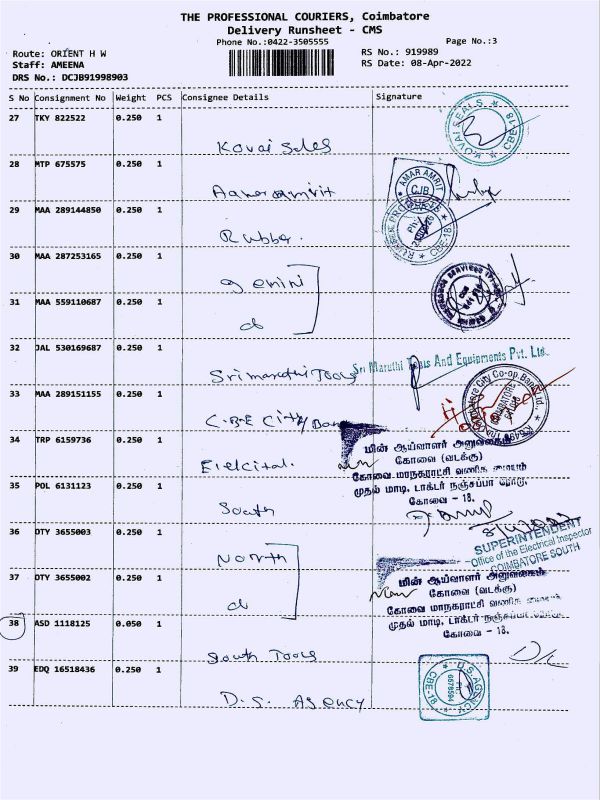 THE PROFESSIONAL COURIERS, Coimbatore
Delivery Runsheet - CMS
Phone No.:0422-3505555
Page No.:3
Route: ORIENT H W
RS No.: 919989
Staff: AMEENA
RS Date: 08-Apr-2022
DRS No.: DCJB91998903
S No Consignment No Weight PCS Consignee Details Signature
27 TKY 822522 0.250 1
Kovai Sales
KOVAI SEALS CBE-18
28 MTP 675575 0.250 1
AMAR AMRIT
CJB
29 MAA 289144850 0.250 1
Rubber
CBE-18
30 MAA 287253165 0.250 1
gemini
31 MAA 559110687 0.250 1
d
32 JAL 530169687 0.250 1
Sri Maruthi Tools
Sri Maruthi Tools And Equipments Pvt. Ltd.
33 MAA 289151155 0.250 1
C.B.E City Bank
City Co-op. Bank Ltd.
COIMBATORE
34 TRP 6159736 0.250 1
மின் ஆய்வாளர் அலுவலகம்
கோவை (வடக்கு)
கோவை மாநகராட்சி வணிக வளாகம்
முதல் மாடி, டாக்டர் நஞ்சப்பா ரோடு,
கோவை - 18.
35 POL 6131123 0.250 1
South
36 DTY 3655003 0.250 1
North
SUPERINTENDENT
Office of the Electrical Inspector
COIMBATORE SOUTH
37 DTY 3655002 0.250 1
d
மின் ஆய்வாளர் அலுவலகம்
கோவை (வடக்கு)
கோவை மாநகராட்சி வணிக வளாகம்
முதல் மாடி, டாக்டர் நஞ்சப்பா ரோடு,
கோவை - 18.
38 ASD 1118125 0.050 1
South Tools
39 EDQ 16518436 0.250 1
D.S. Agency
D.S.AGENCY
CBE-18